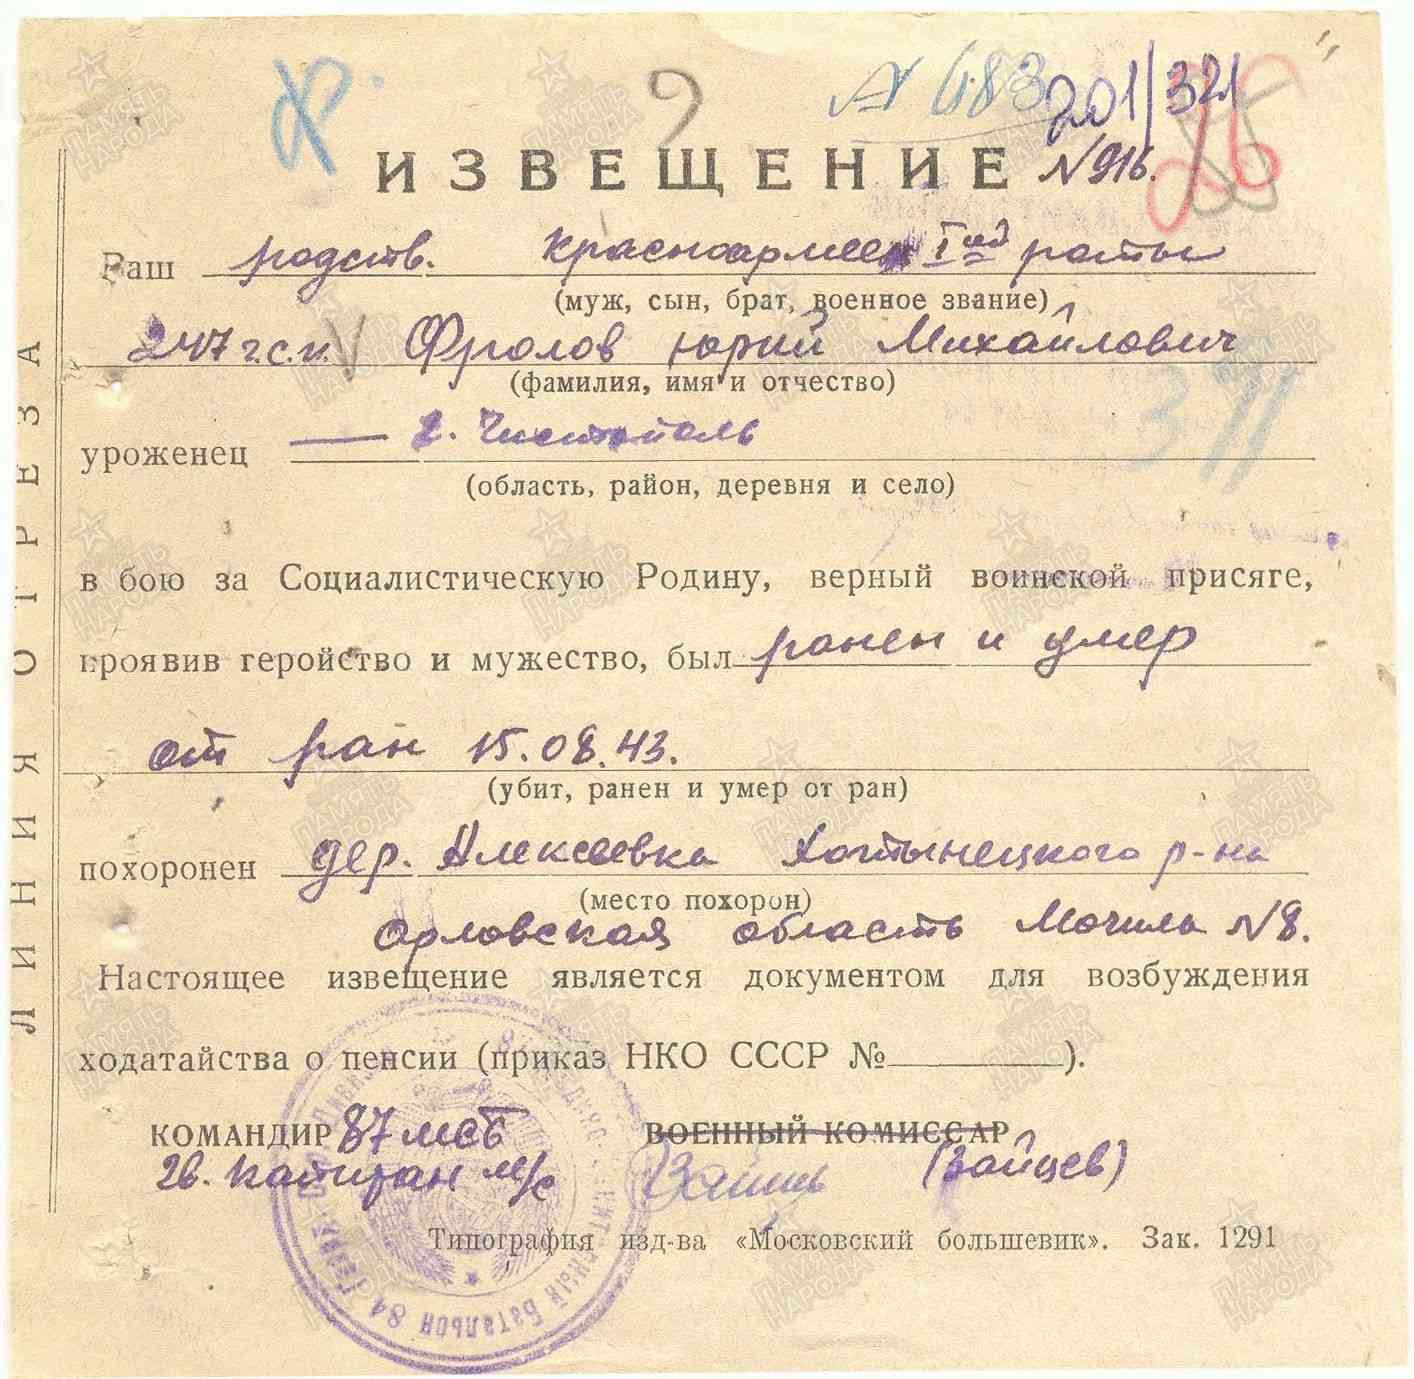 № 683 201/321
ИЗВЕЩЕНИЕ №916.
Ваш родств. красноармеец Iой роты
(муж, сын, брат, военное звание)
247 г.с.п. Фролов Юрий Михайлович
(фамилия, имя и отчество)
371
уроженец — г. Чистополь
(область, район, деревня и село)
в бою за Социалистическую Родину, верный воинской присяге,
проявив геройство и мужество, был ранен и умер
от ран 15.08.43.
(убит, ранен и умер от ран)
похоронен дер. Алексеевка Хотынецкого р-на
(место похорон)
Орловская область Могила №8.
Настоящее извещение является документом для возбуждения
ходатайства о пенсии (приказ НКО СССР № ).
КОМАНДИР 87 мсб ВОЕННЫЙ КОМИССАР
гв. капитан м/с (Зайцев)
Типография изд-ва «Московский большевик». Зак. 1291
ЛИНИЯ ОТРЕЗА
ПАМЯТЬ НАРОДА